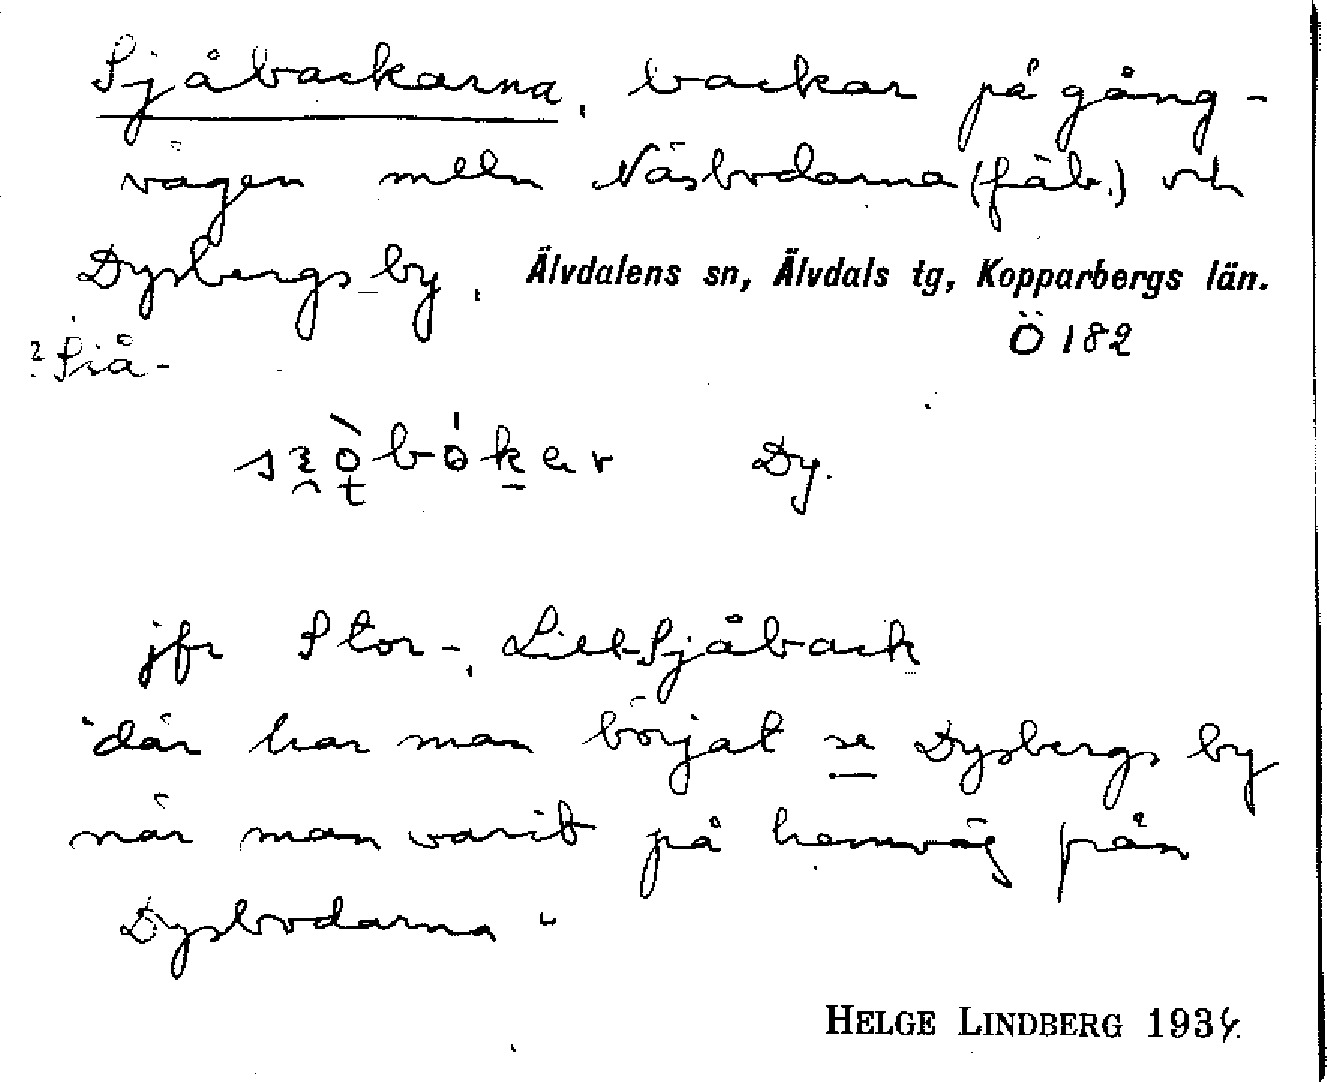 Sjåbackarna, backar på gång-
vägen melln Näsbodarna (fäb.) och
Dysbergs by, Älvdalens sn, Älvdals tg, Kopparbergs län.
Ö 182
? Siå-
Dy.
jfr Stor-, Lill-Sjåback
"där har man börjat se Dysbergs by
när man varit på hemväg från
Dysbodarna"
HELGE LINDBERG 1934.